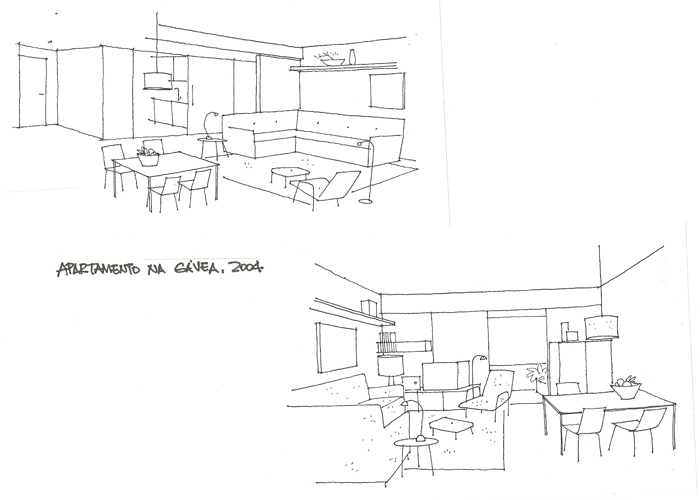 APARTAMENTO NA GÁVEA, 2004.